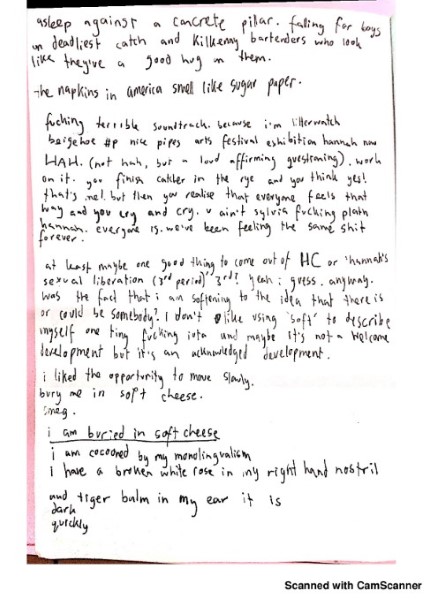 asleep against a concrete pillar. falling for boys
on deadliest catch and Kilkenny bartenders who look
like they give a good hug on them.
the napkins in america smell like sugar paper.
fucking terrible soundtrack. because i'm
nice pipes arts festival exhibition hannah now
HAH. (not hah, but a loud affirming questioning). work
on it. you finish catcher in the rye and you think yes!
that's me! but then you realise that everyone feels that
way and you cry and cry. u ain't sylvia fucking plath
hannah. everyone is. we've been feeling the same shit
forever.
at least maybe one good thing to come out of HC or 'hannah's
sexual liberation (3rd period)' 3rd? yeah i guess. anyway.
was the fact that i am softening to the idea that there is
or could be somebody? I don't like using 'soft' to describe
myself one tiny fucking iota and maybe it's not a welcome
development but it's an acknowledged development.
i liked the opportunity to move slowly.
bury me in soft cheese.
smeg.
i am buried in soft cheese
i am cocooned by my monolingualism
I have a broken white rose in my right hand nostril
and tiger balm in my ear it is
dark
quickly
Scanned with CamScanner